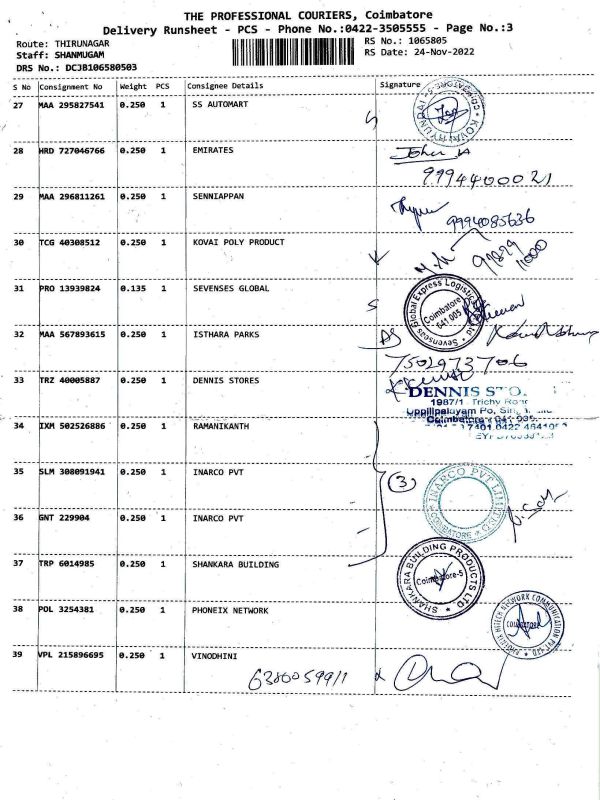 THE PROFESSIONAL COURIERS, Coimbatore
Delivery Runsheet - PCS - Phone No.:0422-3505555 - Page No.:3
Route: THIRUNAGAR RS No.: 1065805
Staff: SHANMUGAM RS Date: 24-Nov-2022
DRS No.: DCJB106580503
S No Consignment No Weight PCS Consignee Details Signature
27 MAA 295827541 0.250 1 SS AUTOMART
28 HRD 727046766 0.250 1 EMIRATES
9994400021
29 MAA 296811261 0.250 1 SENNIAPPAN
9994085636
30 TCG 40308512 0.250 1 KOVAI POLY PRODUCT
31 PRO 13939824 0.135 1 SEVENSES GLOBAL
Sevenseas Global Express Logistics
Coimbatore
641 005
32 MAA 567893615 0.250 1 ISTHARA PARKS
7502973706
33 TRZ 40005887 0.250 1 DENNIS STORES
DENNIS STO
1987/1 Trichy Road
Uppilipalayam Po,
Coimbatore 641 035.
34 IXM 502526886 0.250 1 RAMANIKANTH
35 SLM 308091941 0.250 1 INARCO PVT
(3)
INARCO PVT LIMITED
COIMBATORE
36 GNT 229904 0.250 1 INARCO PVT
37 TRP 6014985 0.250 1 SHANKARA BUILDING
SHANKARA BUILDING PRODUCTS LTD
Coimbatore-5
38 POL 3254381 0.250 1 PHONEIX NETWORK
HITECH NETWORK COMMUNICATION PVT LTD
39 VPL 215896695 0.250 1 VINODHINI